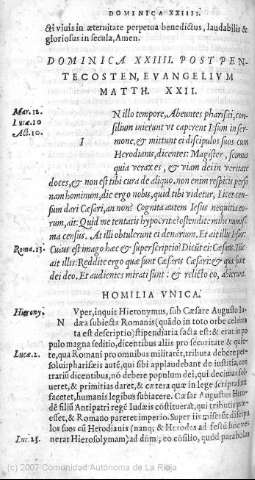 DOMINICA XXIIII.
& vivis in æternitate perpetua benedictus, laudabilis &
gloriosus in secula, Amen.
DOMINICA XXIIII. POST PEN
TECOSTEN, EVANGELIVM
MATTH. XXII.
Mar. 12.
Luc. 20
Act. 10.
I
N illo tempore, Abeuntes pharisæi, con
silium inierunt vt caperent Iesum in sermone,
& mittunt ei discipulos suos cum
Herodianis, dicentes: Magister, scimus
quia verax es, & viam dei in veritate
doces, & non est tibi cura de aliquo, non enim respicis perso
nam hominum, dic ergo nobis, quid tibi videtur, licet cen
sum dari Cæsari, an non? Cognita autem Iesus nequitia eo
rum, ait: Quid me tentatis hypocritæ? ostendite mihi numis
ma census. At illi obtulerunt ei denarium. Et ait illis Iesus:
Rom. 13.
Cuius est imago hæc & superscriptio? Dicunt ei: Cæsaris. Tunc
ait illis: Reddite ergo quæ sunt Cæsaris Cæsari: & quæ sunt
dei deo. Et audientes mirati sunt: & relicto eo, abierunt.
HOMILIA VNICA.
Hierony.
N
Vper, inquit Hieronymus, sub Cæsare Augusto Iu
dæa subiecta Romanis, quãdo in toto orbe celebra
ta est descriptio: stipendiaria facta est: & erat in po
pulo magna seditio, dicentibus aliis pro securitate & quie
Luc. 2.
te, qua Romani pro omnibus militarẽt, tributa debere per-
solui: pharisæis autẽ, qui sibi applaudebant de iustitia, con
trariũ dicentibus, nõ debere populum dei, qui decimas sol
ueret, & primitias daret, & cætera quæ in lege scripta sunt
faceret, humanis legibus subiacere. Cæsar Augustus Hero
dẽ filiũ Antipatri regẽ Iudæis cõstituerat, qui tributis præ-
esset, & Romano pareret imperio.
suos cũ Herodianis
Luc. 23.
nerat Hierosolymam)
(c) 2007 Comunidad Autónoma de La Rioja